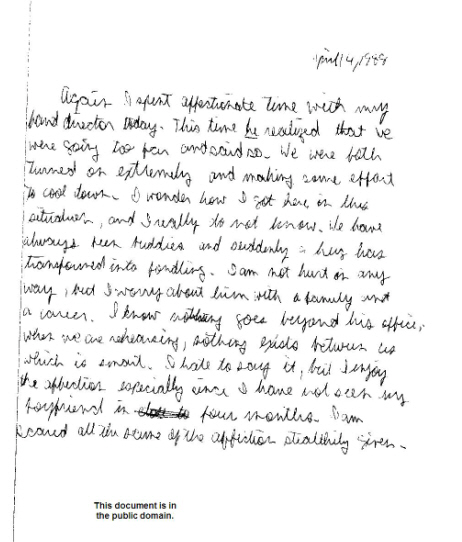 April 14, 1988
Again I spent affectionate time with my
band director today. This time he realized that we
were going too far and said so. We were both
turned on extremely and making some effort
to cool down. I wonder how I got here in this
situation, and I really do not know. We have
always been buddies and suddenly a hug has
transformed into fondling. I am not hurt in any
way, but I worry about him with a family and
a career. I know nothing goes beyond his office;
when we are rehearsing, nothing exists between us
which is smart. I hate to say it, but I enjoy
the affection especially since I have not seen my
boyfriend in four months. I am
scared all the same of the affection stealthily given.
This document is in
the public domain.